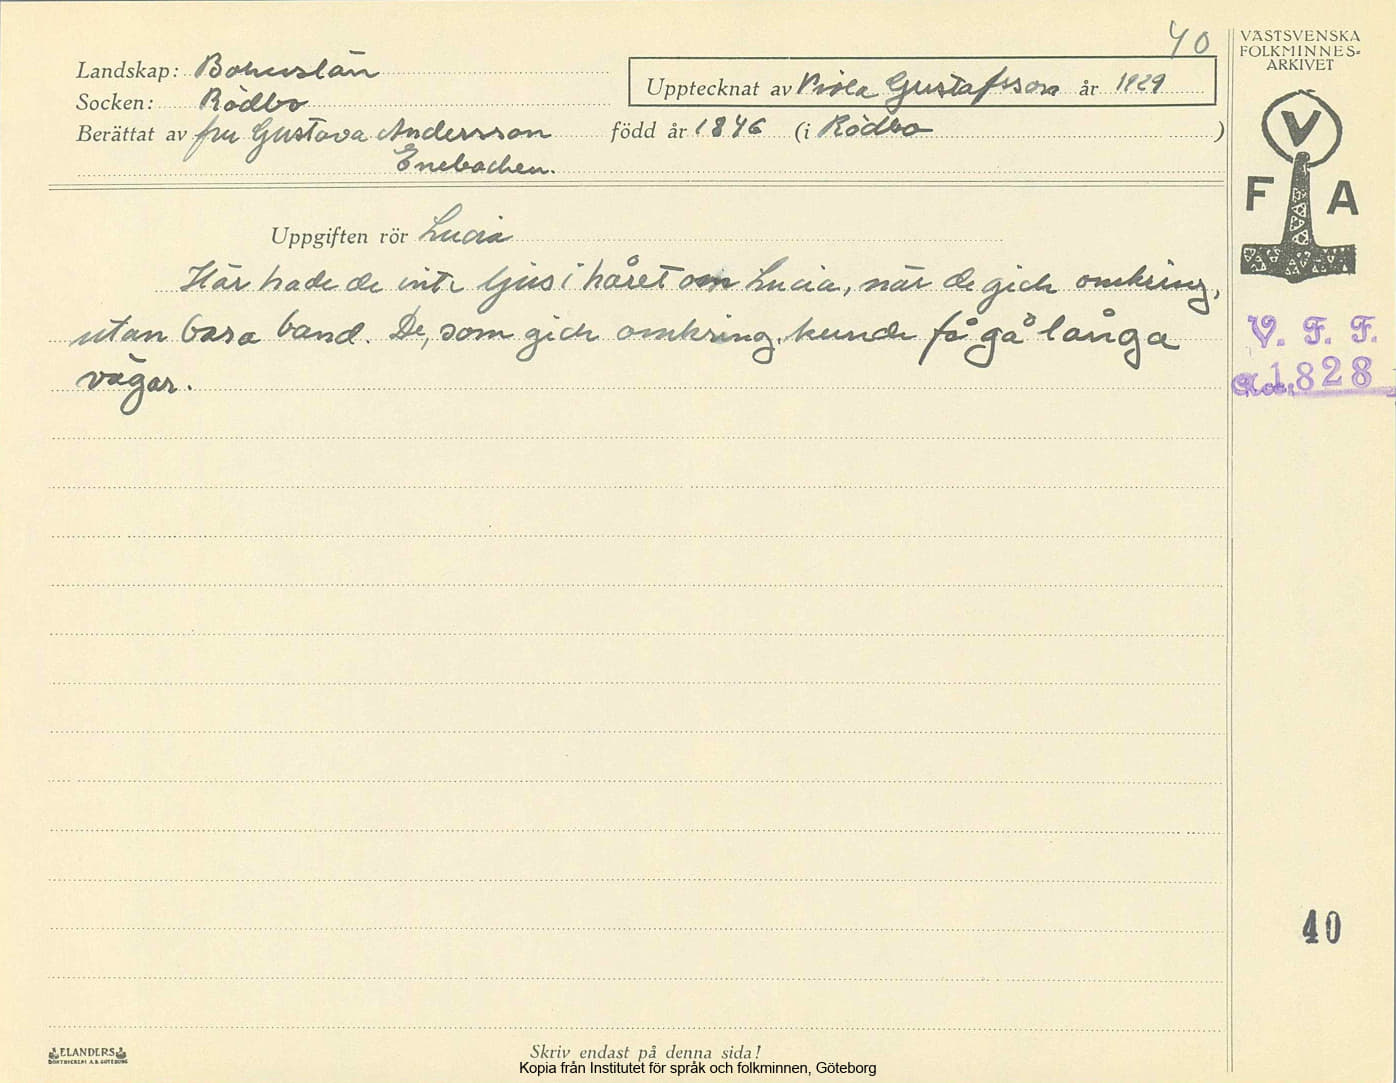 40
VÄSTSVENSKA
FOLKMINNES-
ARKIVET
Landskap: Bohuslän
Upptecknat av Viola Gustafsson år 1929
Socken: Rödbo
Berättat av fru Gustava Andersson född år 1846 (i Rödbo )
Enebacken.
V
F A
Uppgiften rör Lucia
Här hade de inte ljus i håret om Lucia, när de gick omkring,
utan bara band. De, som gick omkring, kunde få gå långa
vägar.
V. F. F.
Acc. 1828
40
ELANDERS
BOKTRYCKERI A.B. GÖTEBORG
Skriv endast på denna sida!
Kopia från Institutet för språk och folkminnen, Göteborg